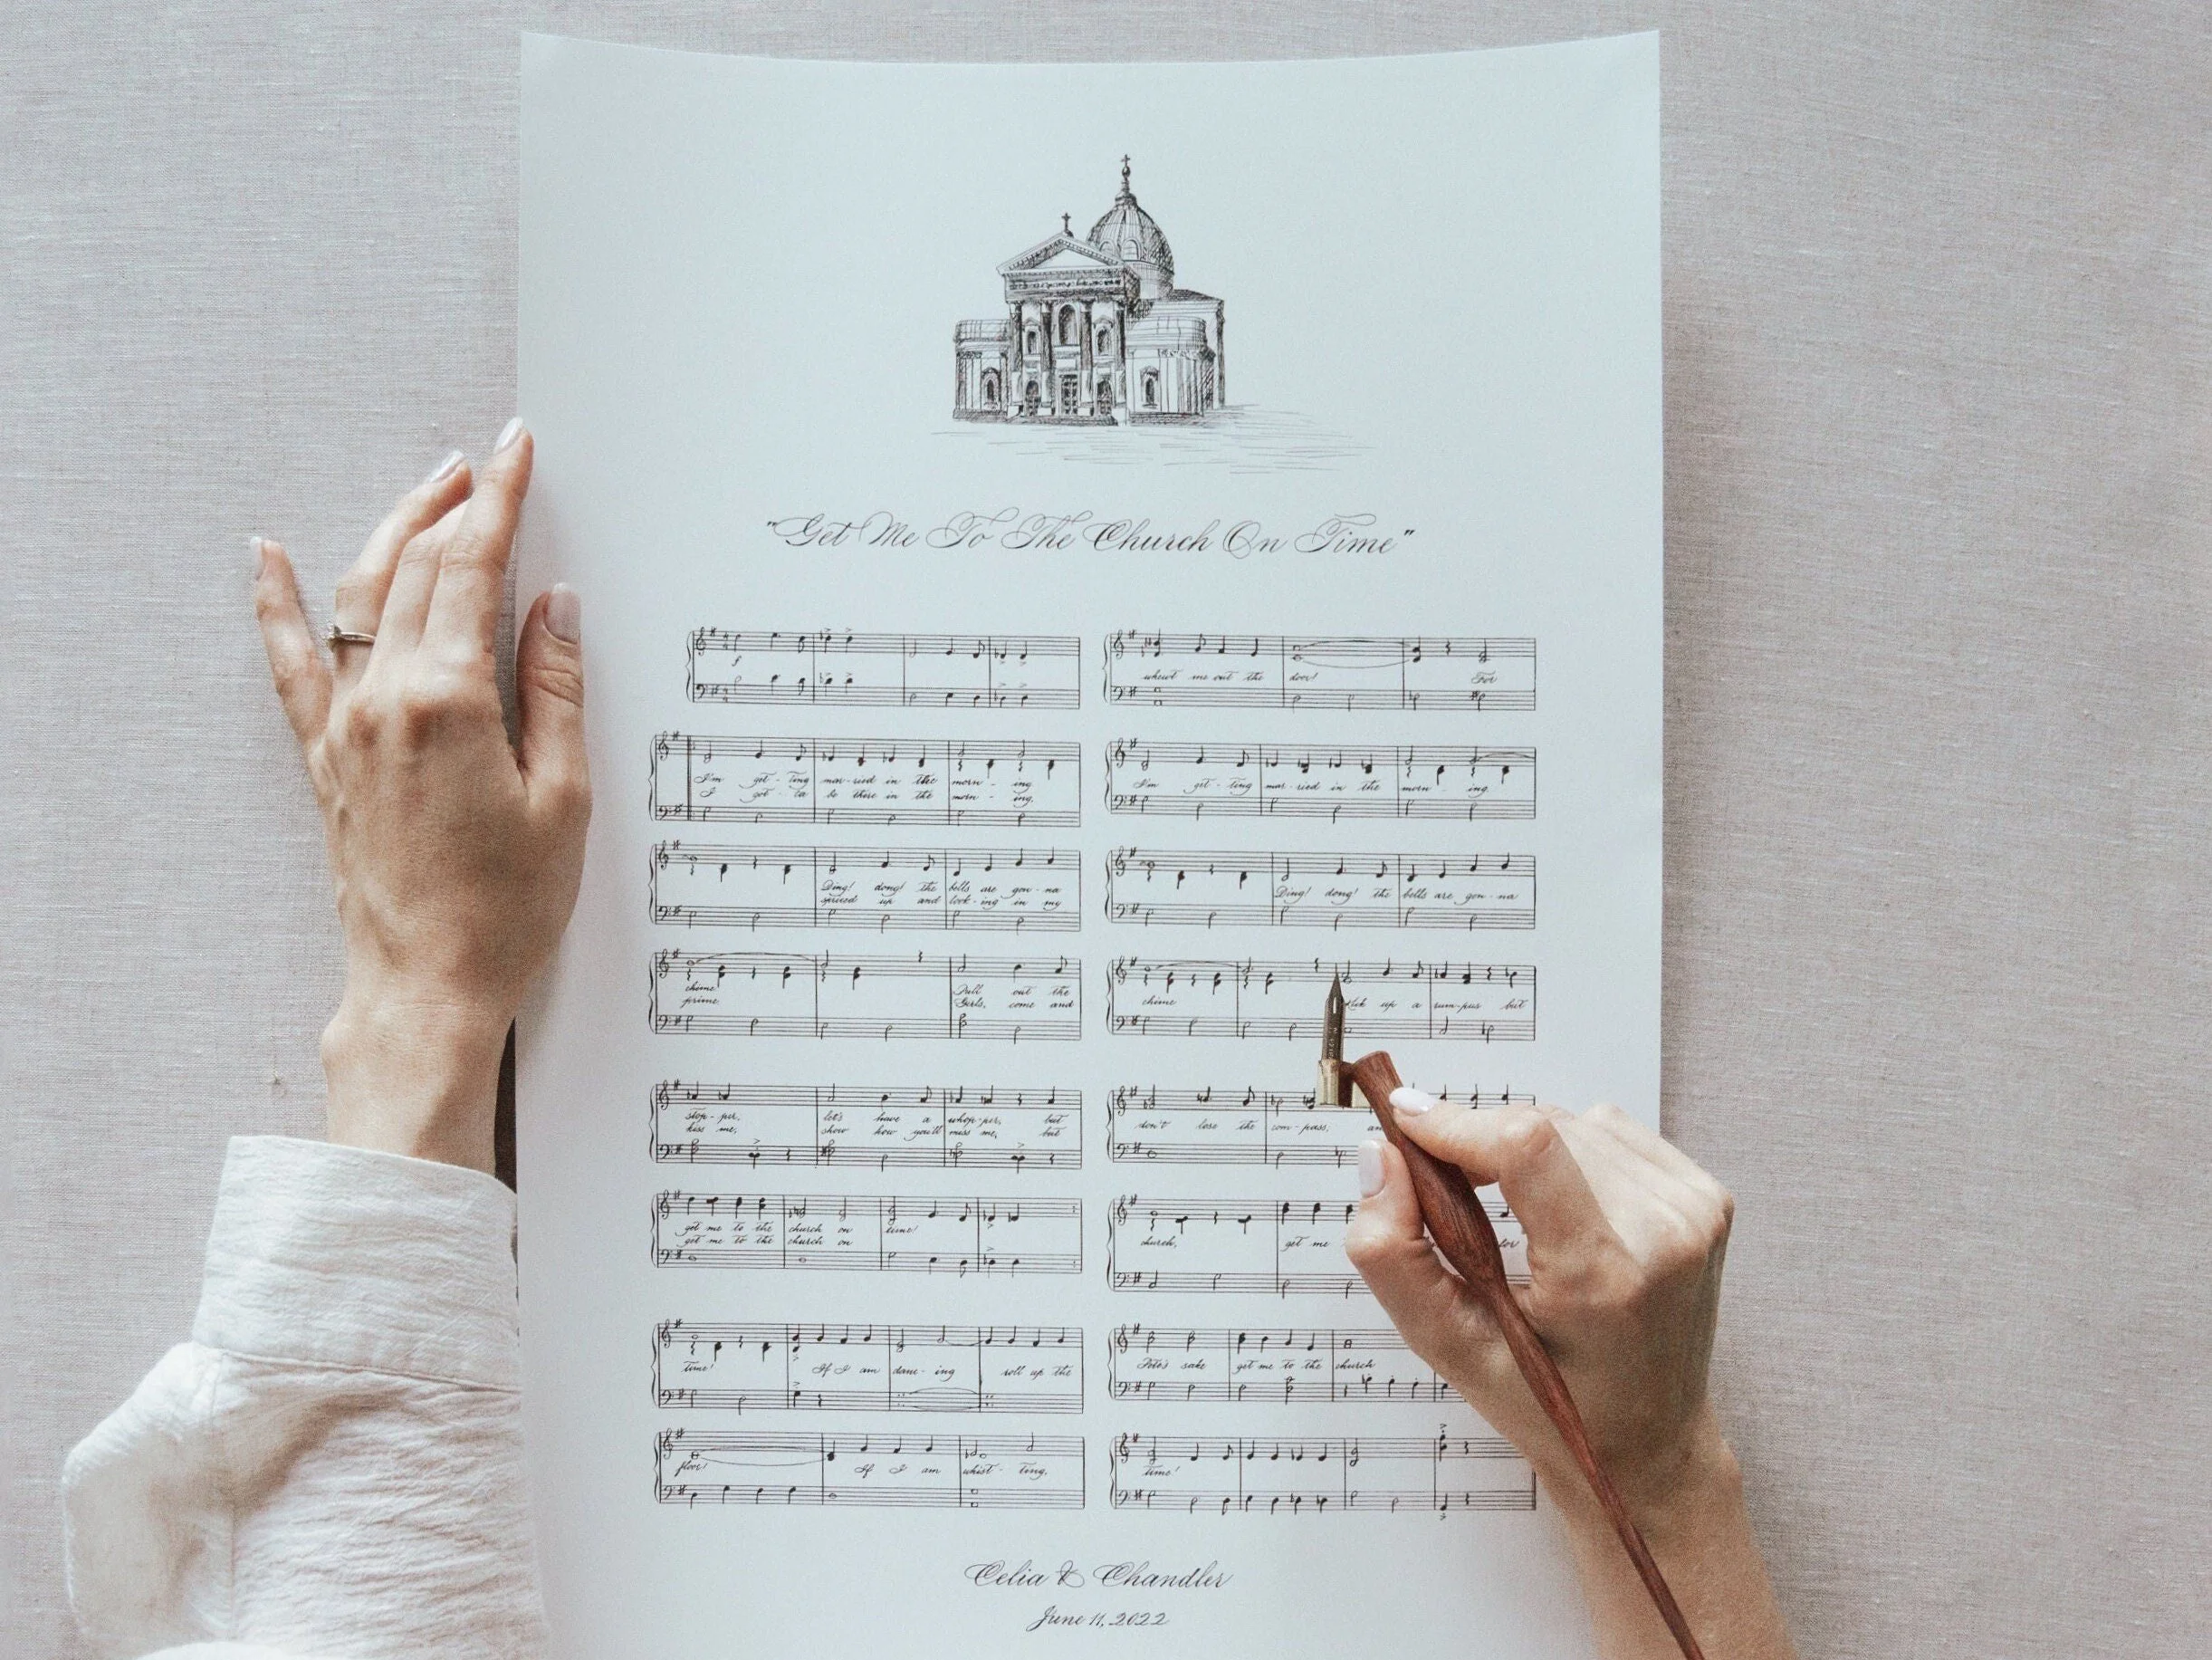 "Get Me To The Church On Time"
I'm get - ting mar - ried in the morn - ing
I got - ta be there in the morn - ing,
Ding! dong! the bells are gon - na
spruced up and look - ing in my
chime
prime
Pull out the
Girls, come and
stop - per,
let's have a whop - per, but
kiss me,
show how you'll miss me, but
get me to the church on time!
get me to the church on
time! If I am danc - ing roll up the
floor! If I am whist - ling,
me out the door! For
I'm get - ting mar - ried in the morn - ing
Ding! dong! the bells are gon - na
chime
up a rum - pus but
don't lose the com - pass;
church, get me for
Pete's sake get me to the church
time!
Celia & Chandler
June 11, 2022